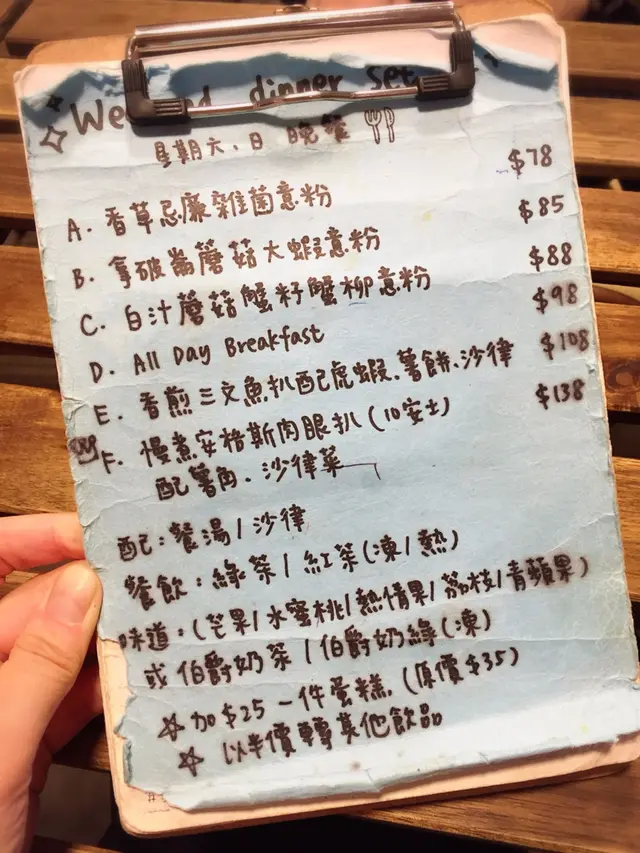 Weekend dinner set
星期六、日 晚餐
A. 香草忌廉雜菌意粉 $78
B. 拿破崙蘑菇大蝦意粉 $85
C. 白汁蘑菇蟹籽蟹柳意粉 $88
D. All Day Breakfast $98
E. 香煎三文魚扒配虎蝦、薯餅、沙律 $108
F. 慢煮安格斯肉眼扒(10安士) $138
配薯角、沙律菜
配:餐湯/沙律
餐飲:綠茶/紅茶(凍/熱)
味道:(芒果/水蜜桃/熱情果/荔枝/青蘋果)
或伯爵奶茶/伯爵奶綠(凍)
☆加$25一件蛋糕.(原價$35)
☆以半價轉其他飲品